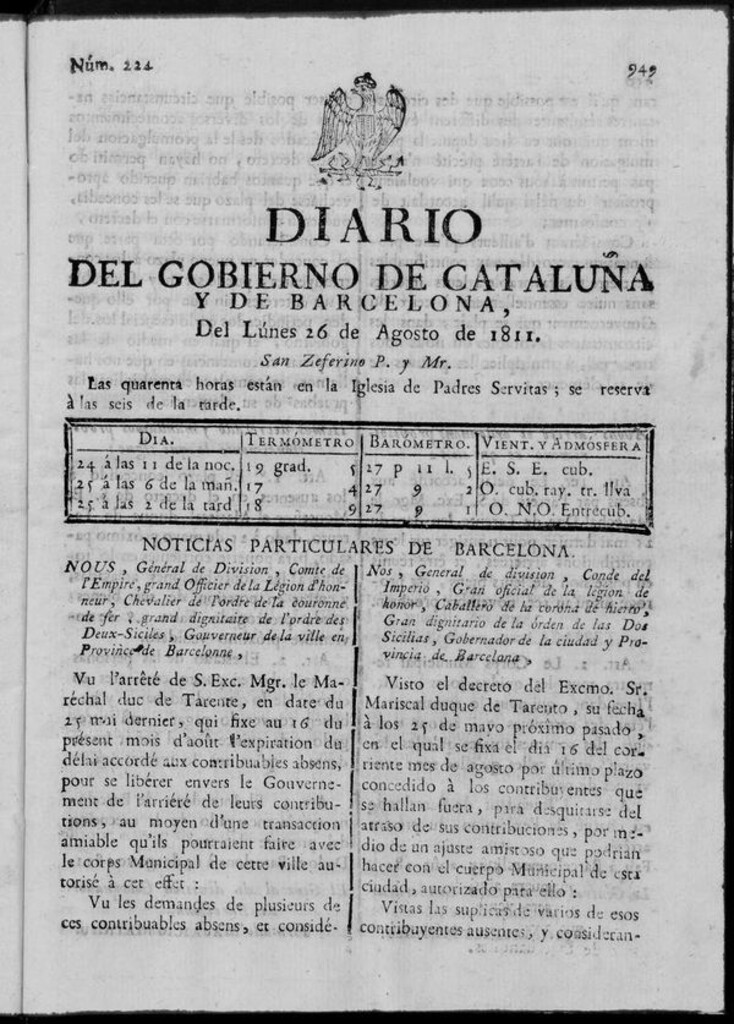 Núm. 224
949
DIARIO
DEL GOBIERNO DE CATALUÑA
Y DE BARCELONA,
Del Lúnes 26 de Agosto de 1811.
San Zeferino P. y Mr.
Las quarenta horas están en la Iglesia de Padres Servitas; se reserva
à las seis de la tarde.
DIA. TERMÓMETRO BARÓMETRO. VIENT. Y ADMÓSFERA
24 á las 11 de la noc. 19 grad. 5 27 p 11 l. 5 E. S. E. cub.
25 á las 6 de la mañ. 17 4 27 9 2 O. cub. ray. tr. llva
25 á las 2 de la tard 18 9 27 9 1 O. N.O. Entrecub.
NOTICIAS PARTICULARES DE BARCELONA.
NOUS, Général de Division, Comte de
l'Empire, grand Officier de la Légion d'hon-
neur, Chevalier de l'ordre de la couronne
de fer, grand dignitaire de l'ordre des
Deux-Siciles, Gouverneur de la ville en
Province de Barcelonne,
Vu l'arrêté de S. Exc. Mgr. le Ma-
réchal duc de Tarente, en date du
25 mai dernier, qui fixe au 16 du
présent mois d'août l'expiration du
délai accordé aux contribuables absens,
pour se libérer envers le Gouverne-
ment de l'arriéré de leurs contribu-
tions, au moyen d'une transaction
amiable qu'ils pourraient faire avec
le corps Municipal de cette ville au-
torisé à cet effet:
Vu les demandes de plusieurs de
ces contribuables absens, et considé-
Nos, General de division, Conde del
Imperio, Gran oficial de la legion de
honor, Caballero de la corona de hierro,
Gran dignitario de la órden de las Dos
Sicilias, Gobernador de la ciudad y Pro-
vincia de Barcelona,
Visto el decreto del Excmo. Sr.
Mariscal duque de Tarento, su fecha
à los 25 de mayo próximo pasado,
en el qual se fixa el dia 16 del cor-
riente mes de agosto por último plazo
concedido à los contribuyentes que
se hallan fuera, para desquitarse del
atraso de sus contribuciones, por me-
dio de un ajuste amistoso que podrian
hacer con el cuerpo Municipal de esta
ciudad, autorizado para ello:
Vistas las suplicas de varios de esos
contribuyentes ausentes, y consideran-